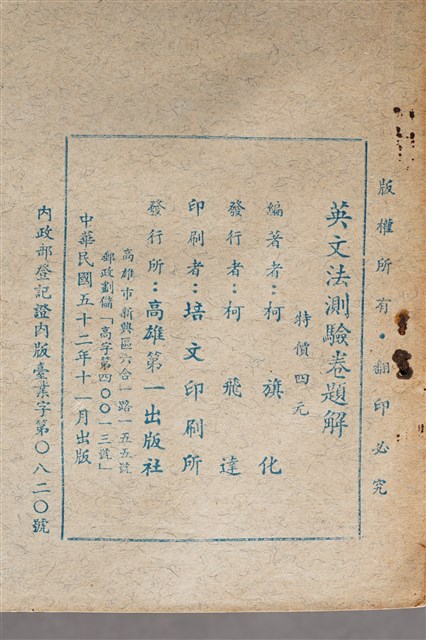 版權所有・翻印必究
英文法測驗卷題解
特價四元
編著者:柯旗化
發行者:柯飛達
印刷者:培文印刷所
發行所:高雄第一出版社
高雄市新興區六合一路一五五號
郵政劃儲「高字第四〇〇一三號」
中華民國五十二年十一月出版
內政部登記證內版臺業字第〇八二〇號